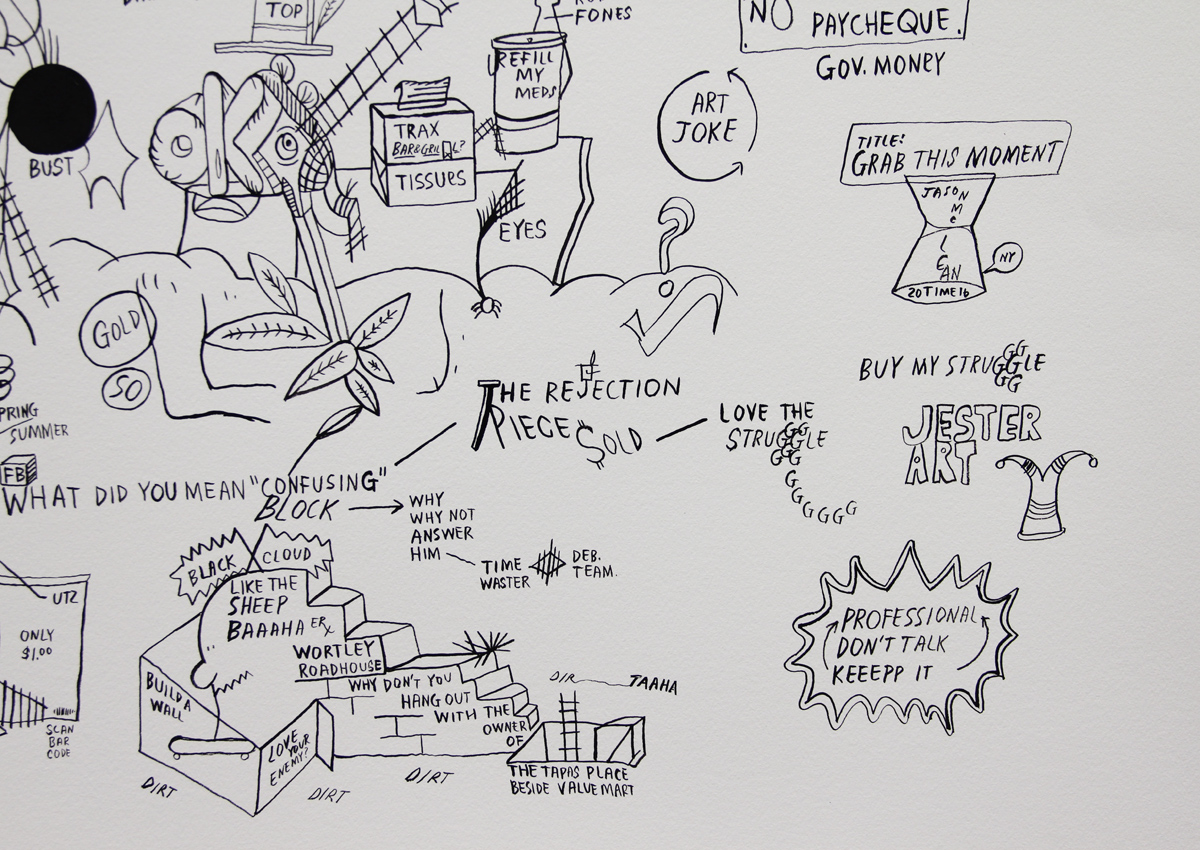 TOP
FONES
REFILL
MY
MEDS
NO PAYCHEQUE.
GOV. MONEY
BUST
TRAX
BAR&GRILL?
TISSUES
EYES
ART
JOKE
TITLE:
GRAB THIS MOMENT
JASON
Mc
LEAN
NY
20TIME16
GOLD
SO
PRING
SUMMER
FB
THE REJECTION
PIECE SOLD
LOVE THE
STRUGGLE
GG
GG
G
G
GGGG
BUY MY STRUGGLE
GG
GG
JESTER
ART
WHAT DID YOU MEAN "CONFUSING"
BLOCK
WHY
WHY NOT
ANSWER
HIM
TIME
WASTER
DEB.
TEAM.
BLACK
CLOUD
LIKE THE
SHEEP
BAAAHA ERX
WORTLEY
ROADHOUSE
UTZ
ONLY
$1.00
SCAN
BAR
CODE
BUILD A
WALL
LOVE
YOUR
ENEMY?
WHY DON'T YOU
HANG OUT
WITH THE
OWNER
OF
DIR TAAHA
THE TAPAS PLACE
BESIDE VALUE MART
DIRT
DIRT
DIRT
PROFESSIONAL
DON'T TALK
KEEEPP IT